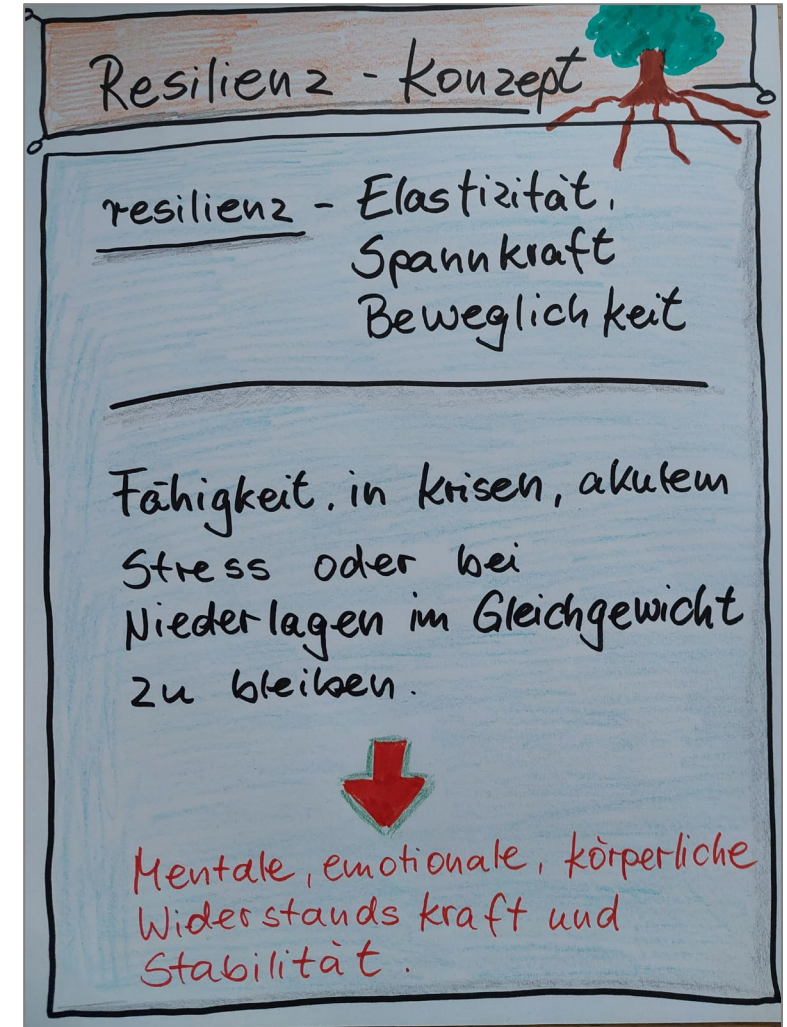 Resilienz - Konzept
resilienz - Elastizität,
Spannkraft
Beweglichkeit
Fähigkeit, in Krisen, akutem
Stress oder bei
Niederlagen im Gleichgewicht
zu bleiben.
Mentale, emotionale, körperliche
Widerstandskraft und
Stabilität.